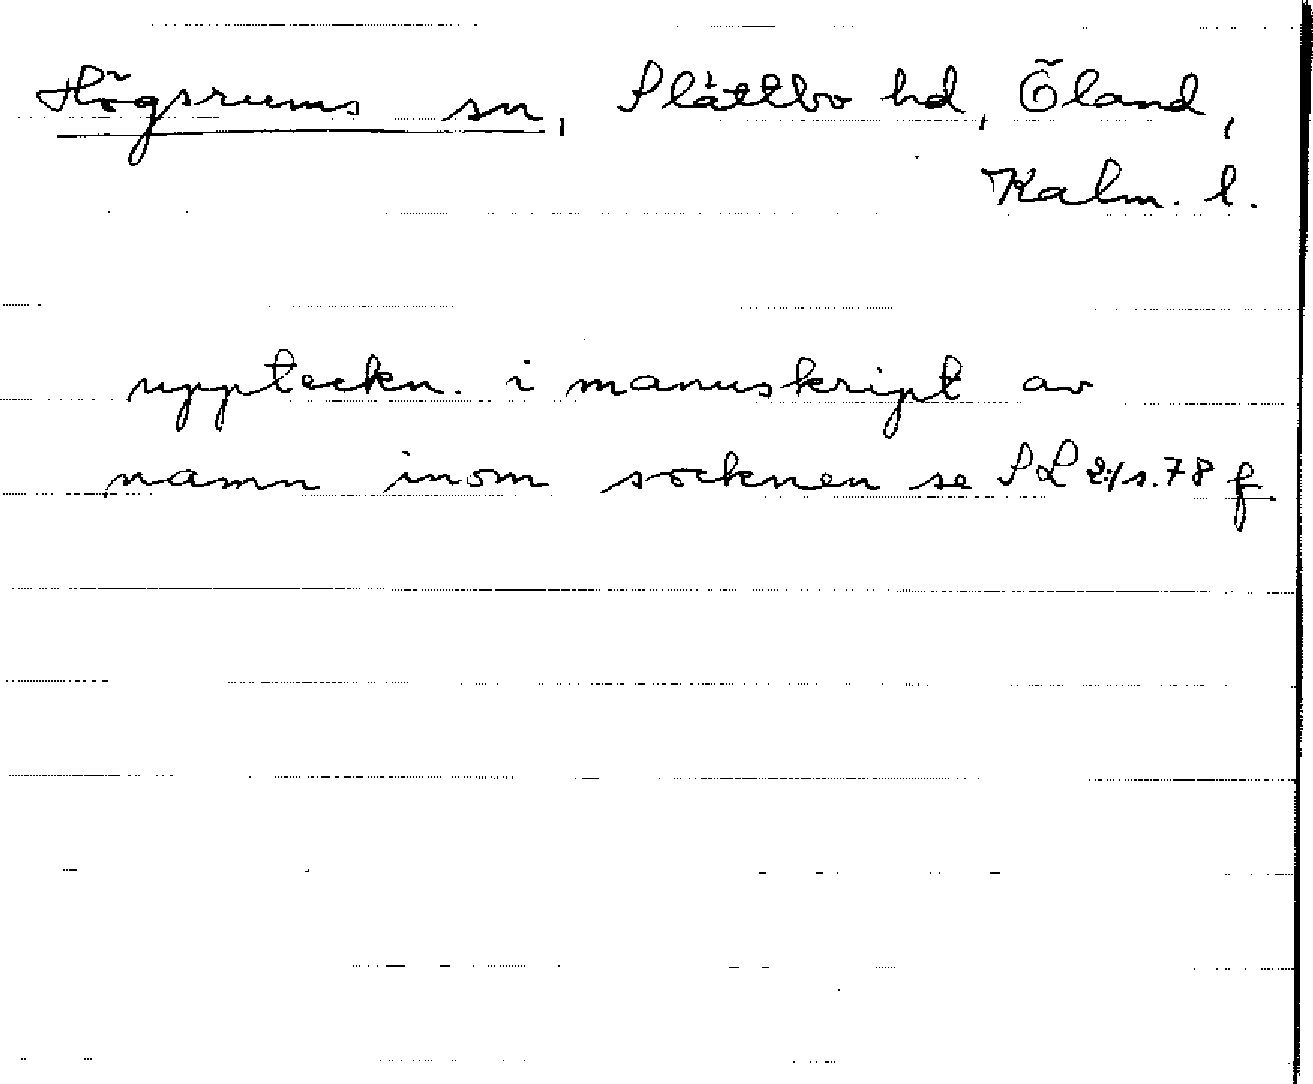 Högsrums sn, Slättbo hd, Öland,
Kalm. l.
uppteckn. i manuskript av
namn inom socknen se SL 2:1 s. 78 f.